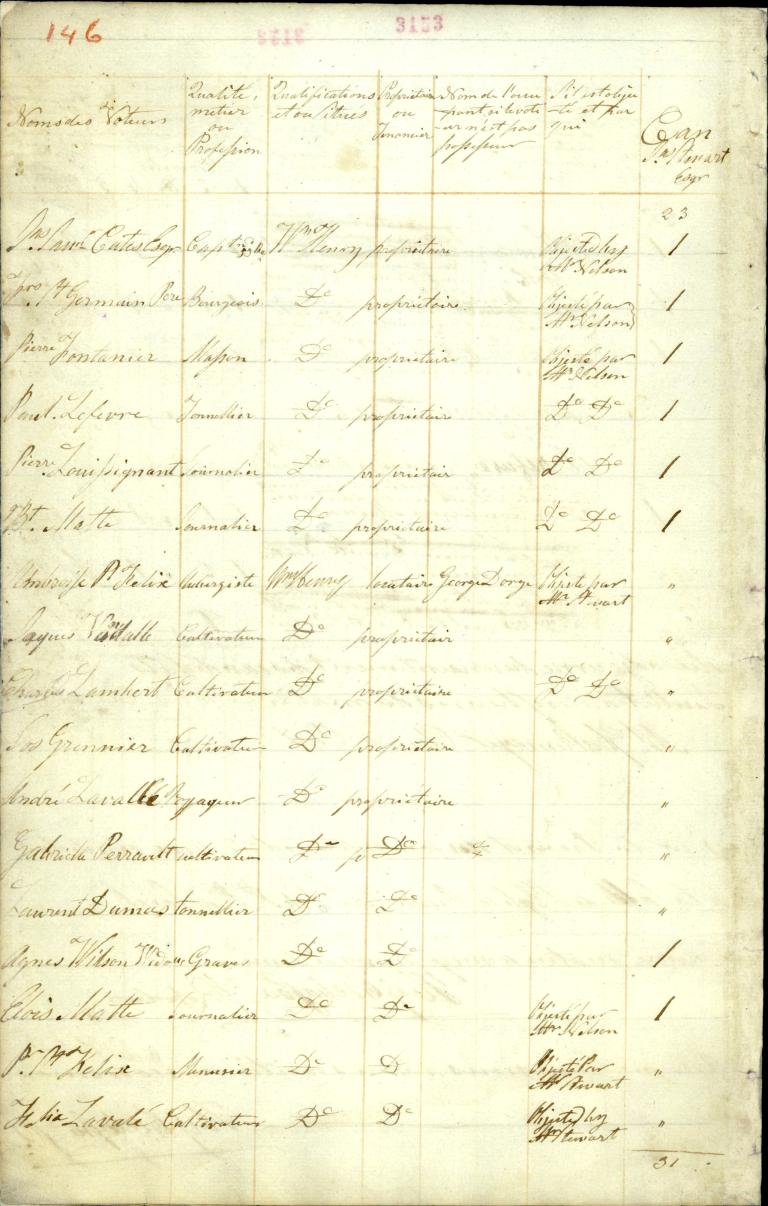 146
3133
Noms des Voteurs
Qualité,
metier
ou
Profession
Qualifications
et ou Situés
Proprietaire
ou
Tenancier
Nom de l'occu
pant si le vote
-ur n'est pas
possesseur
S'il est objec
-té et par
qui
Can
Jas Stewart
Esqr
23
Jas Saml Cates Esqr Capt Wm Henry proprietaire Objected by 1
Mr Nelson
Frs St Germain Pere Bourgeois Do proprietaire Objecté par 1
Mr Nelson
Pierre Fontanier Masson Do proprietaire Objecté par 1
Mr Nelson
Paul Lefevre Tonnellier Do proprietaire Do Do 1
Pierre Louissignant Journalier Do proprietair Do Do 1
Bt. Matte Journalier Do proprietaire Do Do 1
Ambroise Pt Felix Aubergiste Wm Henry locataire George Dorge Objecté par "
Mr Stwart
Jaques Vandalle Cultivateur Do proprietair "
Charles Lambert Cultivateur Do proprietaire Do Do "
Jos Grennier Cultivateur Do proprietaire "
André Lavallée Voyageur Do proprietaire "
Gabriele Perrault cultivateur Do p Do "
Laurent Dumas tonnellier Do Do "
Agnes Wilson Widow Graves Do Do 1
Elois Matte Journalier Do Do Objecté par 1
Mr Nelson
P. Pt Felix Menusier Do D Objecté Par "
Mr Stwart
Felix Lavalé Cultivateur Do Do Objected by "
Mr Stewart
31